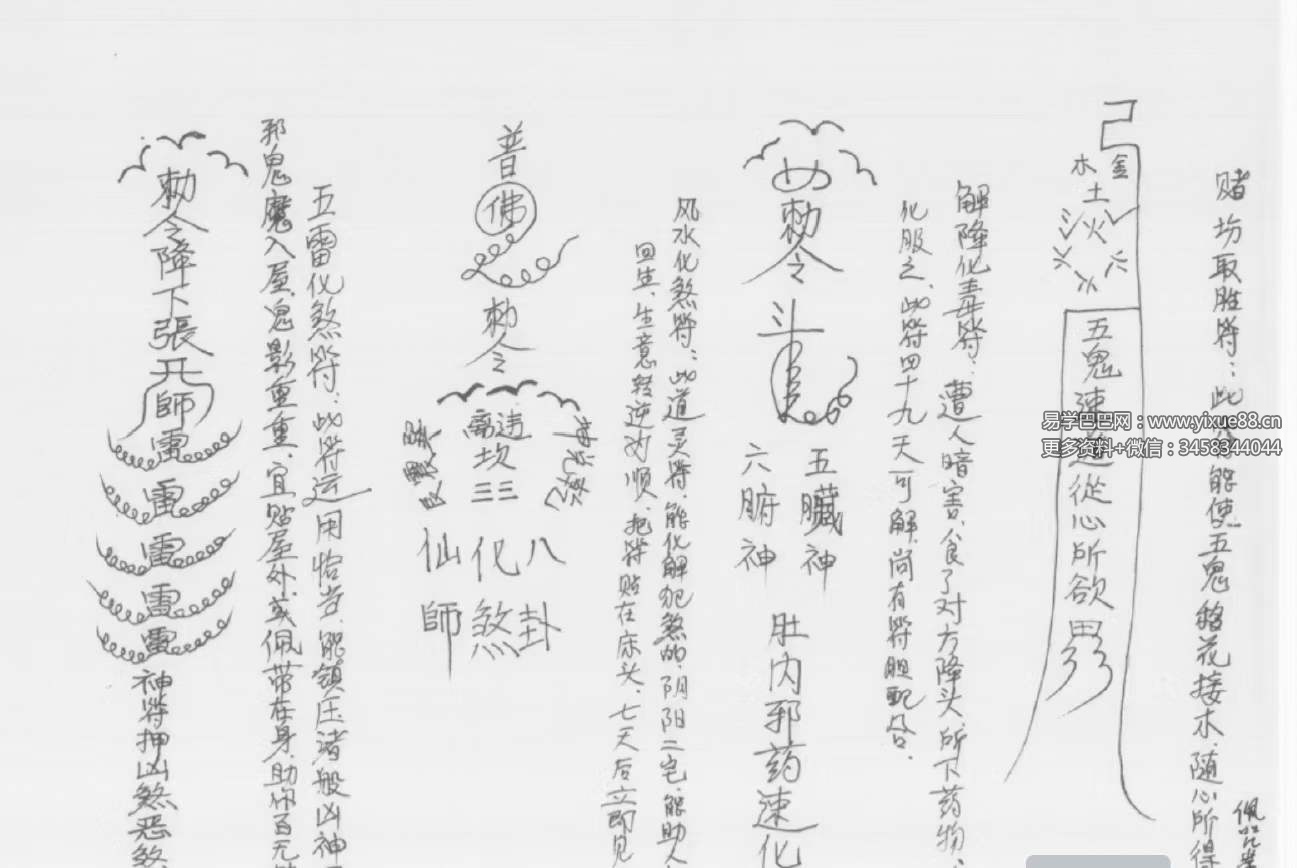 赌坊取胜符：此符能使五鬼移花接木、随心所得
木 金
土
火
五鬼速運從心所欲
易学巴巴网：www.yixue88.cn
更多资料+微信：3458344044
解降化毒符：遭人暗害、食了对方降头、所下药物、
化服之、此符四十九天可解、尚有符胆配合。
勅令
斗
五臟神
六腑神
肚内邪药速化
风水化煞符：此道灵符、能化解犯煞的、阴阳二宅、能助人
回生、生意转逆为顺、把符贴在床头、七天后立即见
普
佛
勅令
坎
八卦
化煞
仙師
五雷化煞符：此符运用恰当、能镇压诸般凶神
邪鬼魔入屋、鬼影重重、宜贴屋外或佩带在身、助你百无
勅令降下張天師
雷
雷
雷
雷
雷
神符押凶煞恶煞